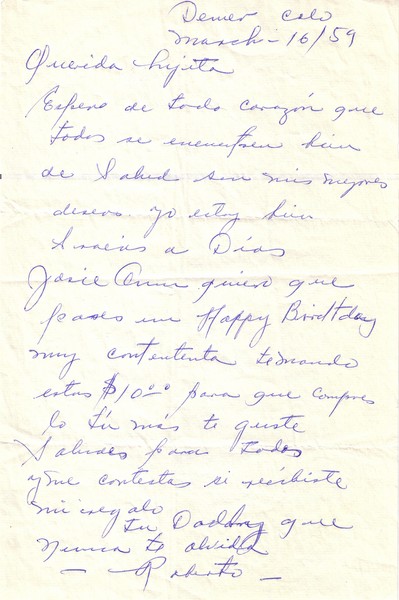 Denver colo
March - 16/59
Querida hijita
Espero de todo corazón que
todos se encuentren bien
de Salud son mis mejores
deseos. yo estoy bien
Gracias a Dios
Josie Ann quiero que
pases un Happy Birdtday
muy contenta te mando
estos $10.00 para que compres
lo tú más te guste
Saludes para todos
y me contestas si recibiste
mi regalo
tu Dadday que
nunca te olvida
- Roberto -